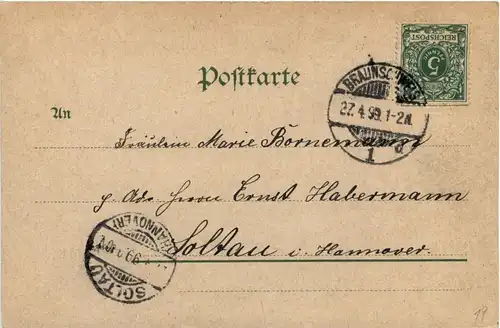 Postkarte
REICHSPOST
5
BRAUNSCHWEIG
27.4.99.1-2N.
1
An
Fräulein Marie Bornemann
p. Adr. Herrn Ernst Habermann
Soltau i. Hannover.
(HANNOVER)
SOLTAU
19